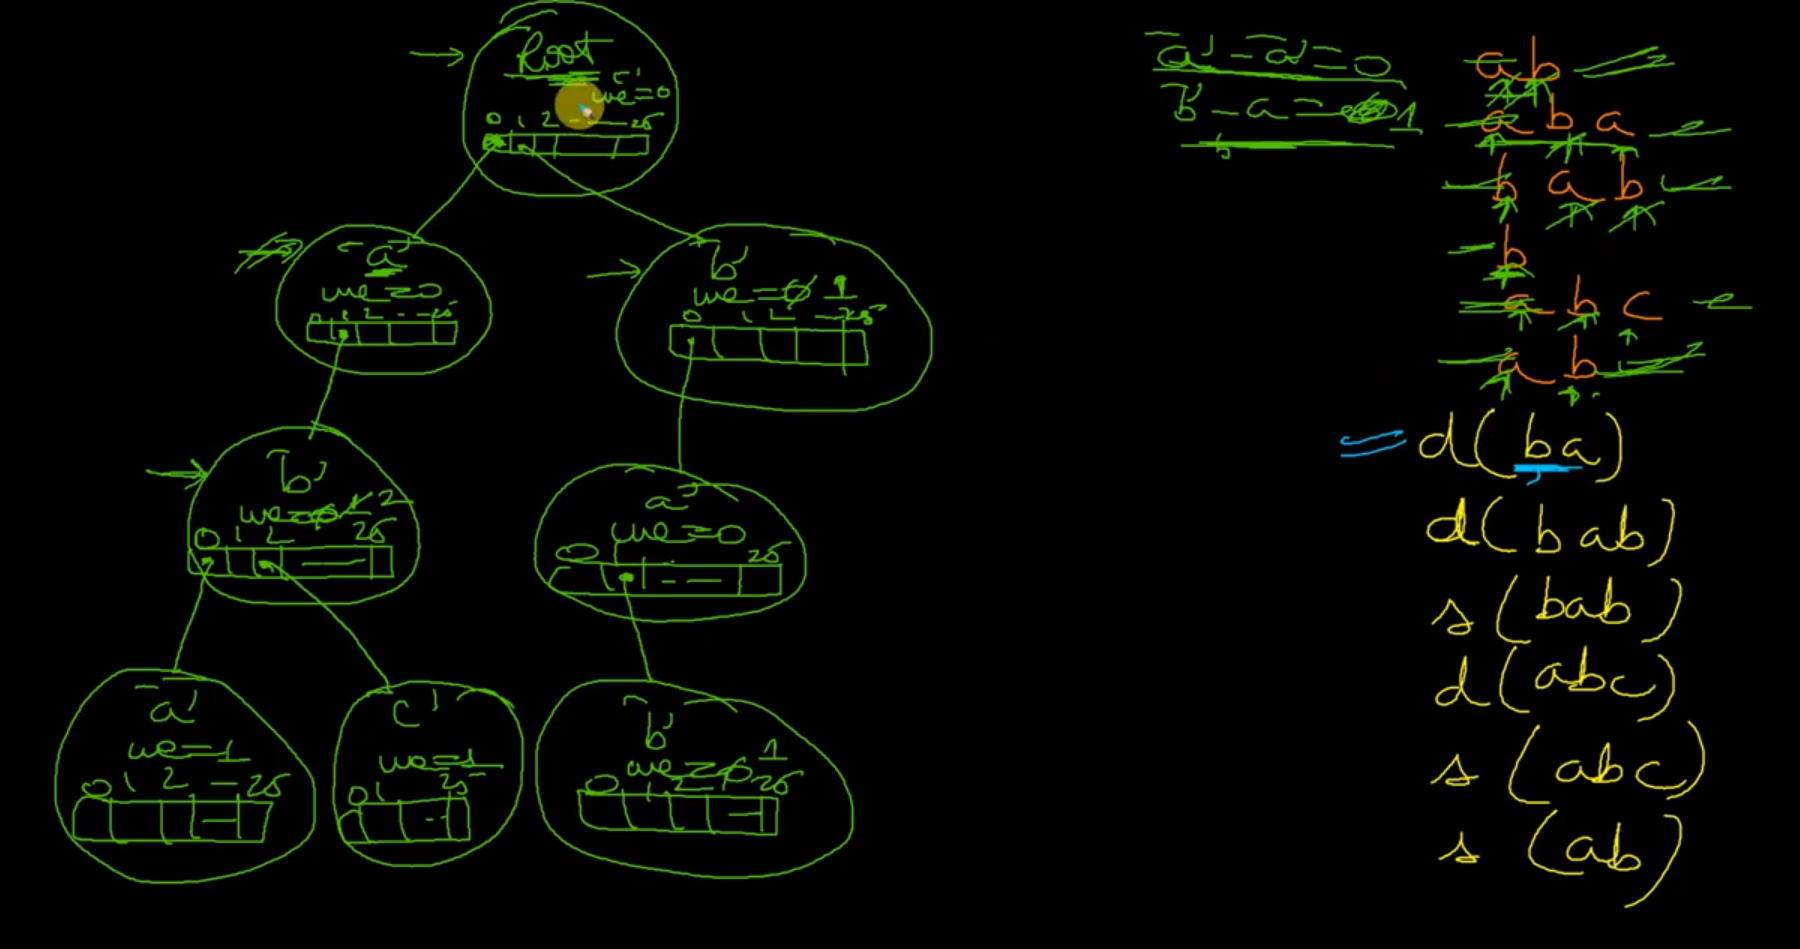 Root
'c'
we=0
0 1 2 - 25
'a'
we=0
0 1 2 - - 25
'b'
we=0 1
0 1 2 - 25
'b'
we=0 1 2
0 1 2 25
'a'
we=0
0 1 25
'a'
we=1
0 1 2 - 25
'c'
we=1
0 1 25
'b'
we=0 1
0 1 2 25
'a' - 'a' = 0
'b' - a = 1
ab
aba
bab
b
abc
ab
d(ba)
d(bab)
s(bab)
d(abc)
s(abc)
s(ab)